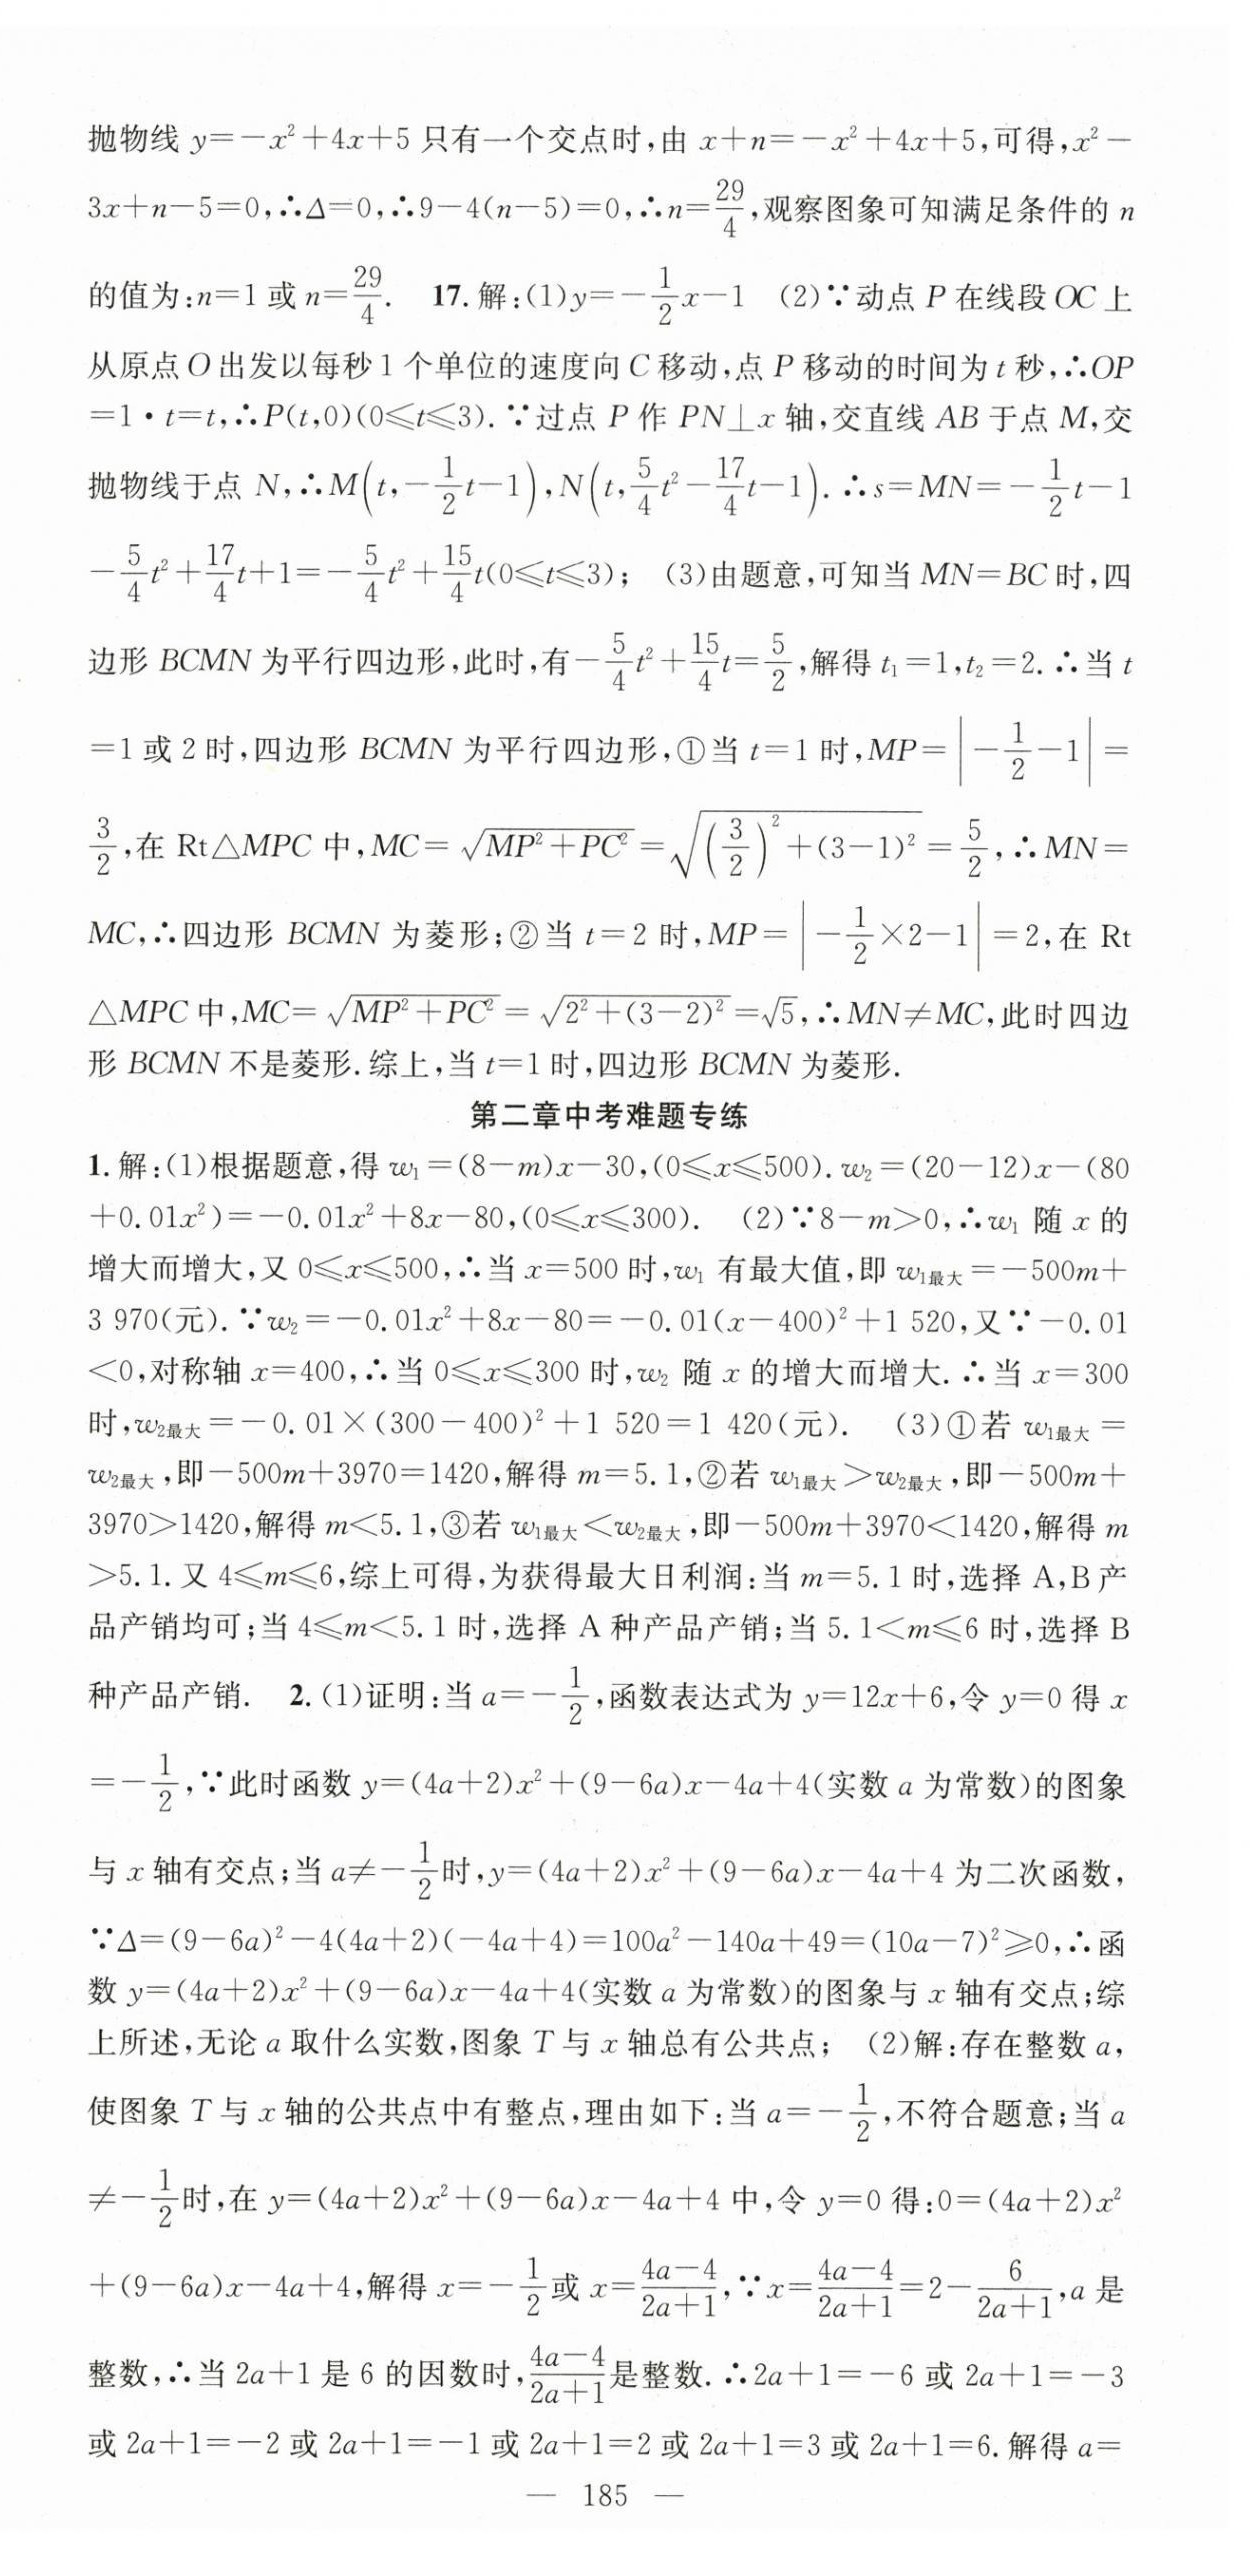 抛物线 y=-x²+4x+5 只有一个交点时,由 x+n=-x²+4x+5,可得,x²-
3x+n-5=0,∴Δ=0,∴9-4(n-5)=0,∴n=29/4,观察图象可知满足条件的 n
的值为:n=1 或 n=29/4. 17.解:(1)y=-1/2x-1 (2)∵动点 P 在线段 OC 上
从原点 O 出发以每秒 1 个单位的速度向 C 移动,点 P 移动的时间为 t 秒,∴OP
=1·t=t,∴P(t,0)(0≤t≤3).∵过点 P 作 PN⊥x 轴,交直线 AB 于点 M,交
抛物线于点 N,∴M(t,-1/2t-1),N(t,5/4t²-17/4t-1).∴s=MN=-1/2t-1
-5/4t²+17/4t+1=-5/4t²+15/4t(0≤t≤3); (3)由题意,可知当 MN=BC 时,四
边形 BCMN 为平行四边形,此时,有-5/4t²+15/4t=5/2,解得 t₁=1,t₂=2.∴当 t
=1 或 2 时,四边形 BCMN 为平行四边形,①当 t=1 时,MP=|-1/2-1|=
3/2,在 Rt△MPC 中,MC=√(MP²+PC²)=√((3/2)²+(3-1)²)=5/2,∴MN=
MC,∴四边形 BCMN 为菱形;②当 t=2 时,MP=|-1/2×2-1|=2,在 Rt
△MPC 中,MC=√(MP²+PC²)=√(2²+(3-2)²)=√5,∴MN≠MC,此时四边
形 BCMN 不是菱形.综上,当 t=1 时,四边形 BCMN 为菱形.
第二章中考难题专练
1.解:(1)根据题意,得 w₁=(8-m)x-30,(0≤x≤500).w₂=(20-12)x-(80
+0.01x²)=-0.01x²+8x-80,(0≤x≤300). (2)∵8-m>0,∴w₁ 随 x 的
增大而增大,又 0≤x≤500,∴当 x=500 时,w₁ 有最大值,即 w₁最大=-500m+
3 970(元).∵w₂=-0.01x²+8x-80=-0.01(x-400)²+1 520,又∵-0.01
<0,对称轴 x=400,∴当 0≤x≤300 时,w₂ 随 x 的增大而增大.∴当 x=300
时,w₂最大=-0.01×(300-400)²+1 520=1 420(元). (3)①若 w₁最大=
w₂最大,即-500m+3970=1420,解得 m=5.1,②若 w₁最大>w₂最大,即-500m+
3970>1420,解得 m<5.1,③若 w₁最大<w₂最大,即-500m+3970<1420,解得 m
>5.1.又 4≤m≤6,综上可得,为获得最大日利润:当 m=5.1 时,选择 A,B 产
品产销均可;当 4≤m<5.1 时,选择 A 种产品产销;当 5.1<m≤6 时,选择 B
种产品产销. 2.(1)证明:当 a=-1/2,函数表达式为 y=12x+6,令 y=0 得 x
=-1/2,∵此时函数 y=(4a+2)x²+(9-6a)x-4a+4(实数 a 为常数)的图象
与 x 轴有交点;当 a≠-1/2时,y=(4a+2)x²+(9-6a)x-4a+4 为二次函数,
∵Δ=(9-6a)²-4(4a+2)(-4a+4)=100a²-140a+49=(10a-7)²≥0,∴函
数 y=(4a+2)x²+(9-6a)x-4a+4(实数 a 为常数)的图象与 x 轴有交点;综
上所述,无论 a 取什么实数,图象 T 与 x 轴总有公共点; (2)解:存在整数 a,
使图象 T 与 x 轴的公共点中有整点,理由如下:当 a=-1/2,不符合题意;当 a
≠-1/2时,在 y=(4a+2)x²+(9-6a)x-4a+4 中,令 y=0 得:0=(4a+2)x²
+(9-6a)x-4a+4,解得 x=-1/2或 x=(4a-4)/(2a+1),∵x=(4a-4)/(2a+1)=2-6/(2a+1),a 是
整数,∴当 2a+1 是 6 的因数时,(4a-4)/(2a+1)是整数.∴2a+1=-6 或 2a+1=-3
或 2a+1=-2 或 2a+1=-1 或 2a+1=2 或 2a+1=3 或 2a+1=6.解得 a=
— 185 —